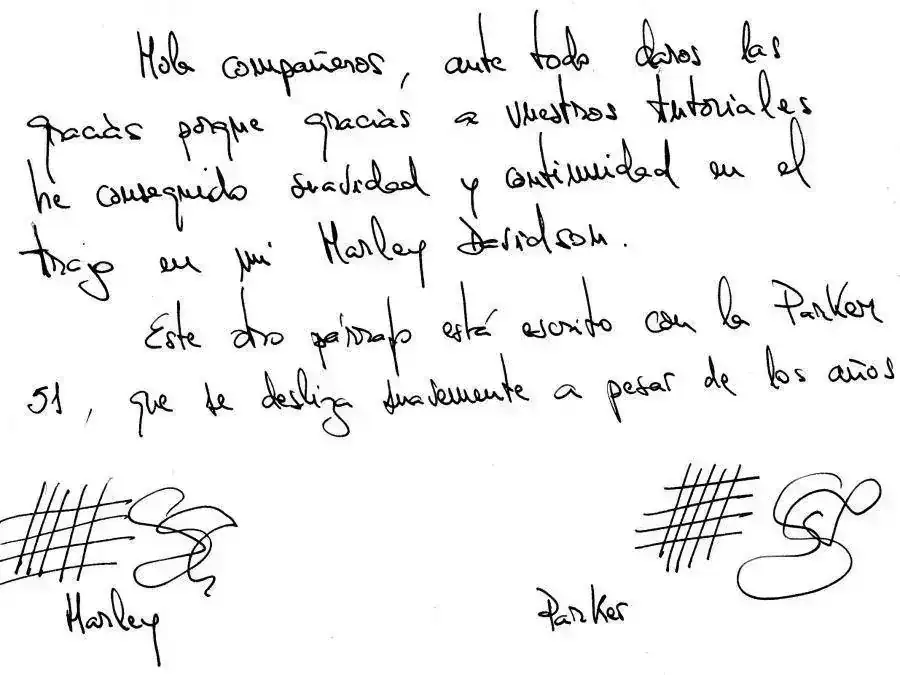 Hola compañeros, ante todo daros las
gracias porque gracias a vuestros tutoriales
he conseguido suavidad y continuidad en el
trazo en mi Harley Davidson.
Este otro párrafo está escrito con la Parker
51, que se desliza suavemente a pesar de los años
Harley
Parker